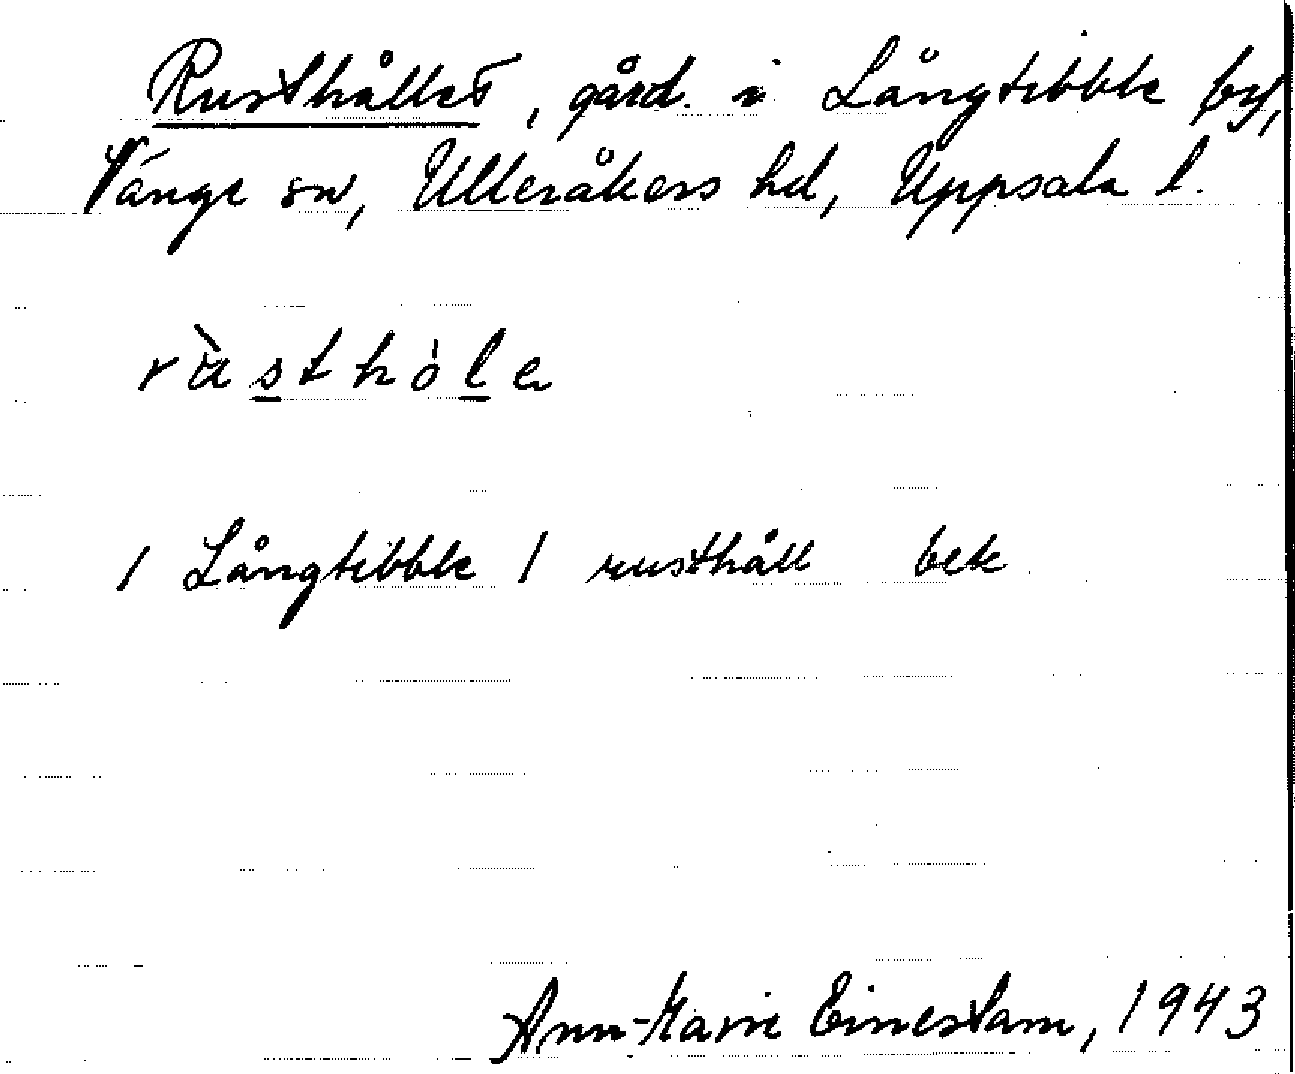 Rusthållet, gård i Långtibble by,
Vänge sn, Ulleråkers hd, Uppsala l.
ràsthóle
1 Långtibble 1 rusthåll bek
Ann-Marie Einestam, 1943